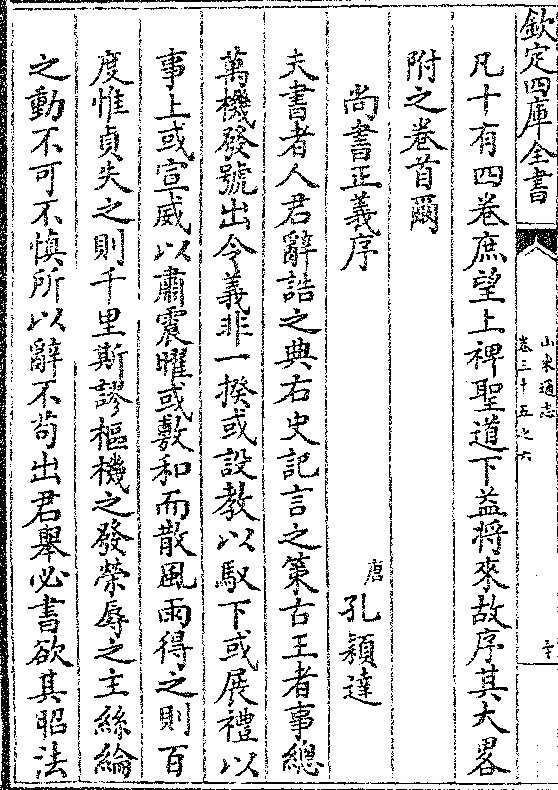 欽定四庫全書
山東通志
卷三十五之六
凡十有四卷庶望上裨聖道下益將來故序其大畧
附之卷首爾
尚書正義序
唐 孔穎達
夫書者人君辭誥之典右史記言之策古王者事總
萬機發號出令義非一揆或設教以馭下或展禮以
事上或宣威以肅震曜或敷和而散風雨得之則百
度惟貞失之則千里斯謬樞機之發榮辱之主絲綸
之動不可不慎所以辭不苟出君舉必書欲其昭法